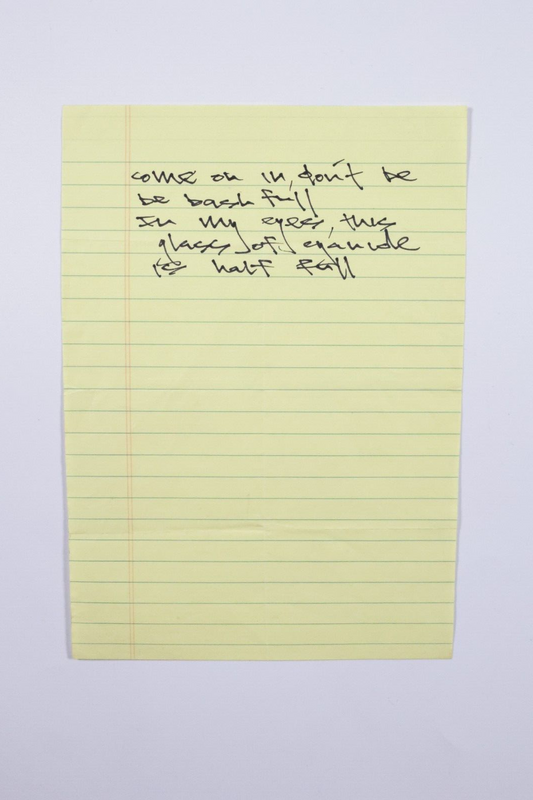 come on in, don't be
be bashfull
In my eyes, this
glass of cyanide
is half full